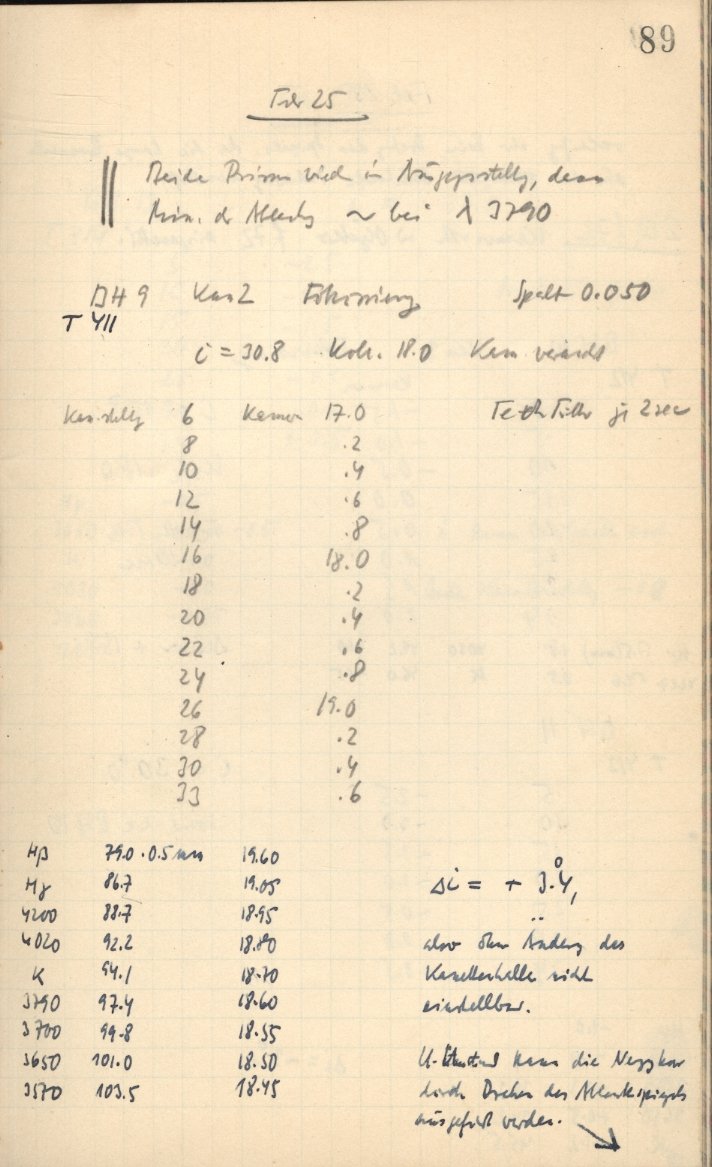 89
Febr 25
Beide Prismen wieder in Ausgangsstellg, denn
Min. der Ablenkg ~ bei λ 3790
BH 9 Kas 2 Fokussierung Spalt 0.050
T 411
i = 30.8 Koll. 18.0 Kam
6 Kamera 17.0 je 2 sec
8 .2
10 .4
12 .6
14 .8
16 18.0
18 .2
20 .4
22 .6
24 .8
26 19.0
28 .2
30 .4
33 .6
Hβ 79.0 · 0.5 mm 19.60
Hγ 86.7 19.05
4200 88.7 18.95
4020 92.2 18.80
K 94.1 18.70
3790 97.4 18.60
3700 99.8 18.55
3650 101.0 18.50
3570 103.5 18.45
Δi = + 3.°4,
also ohne Änderg des
nicht
einstellbar.
kann die
durch Drehen des Ablenkspiegels
ausgeführt werden.